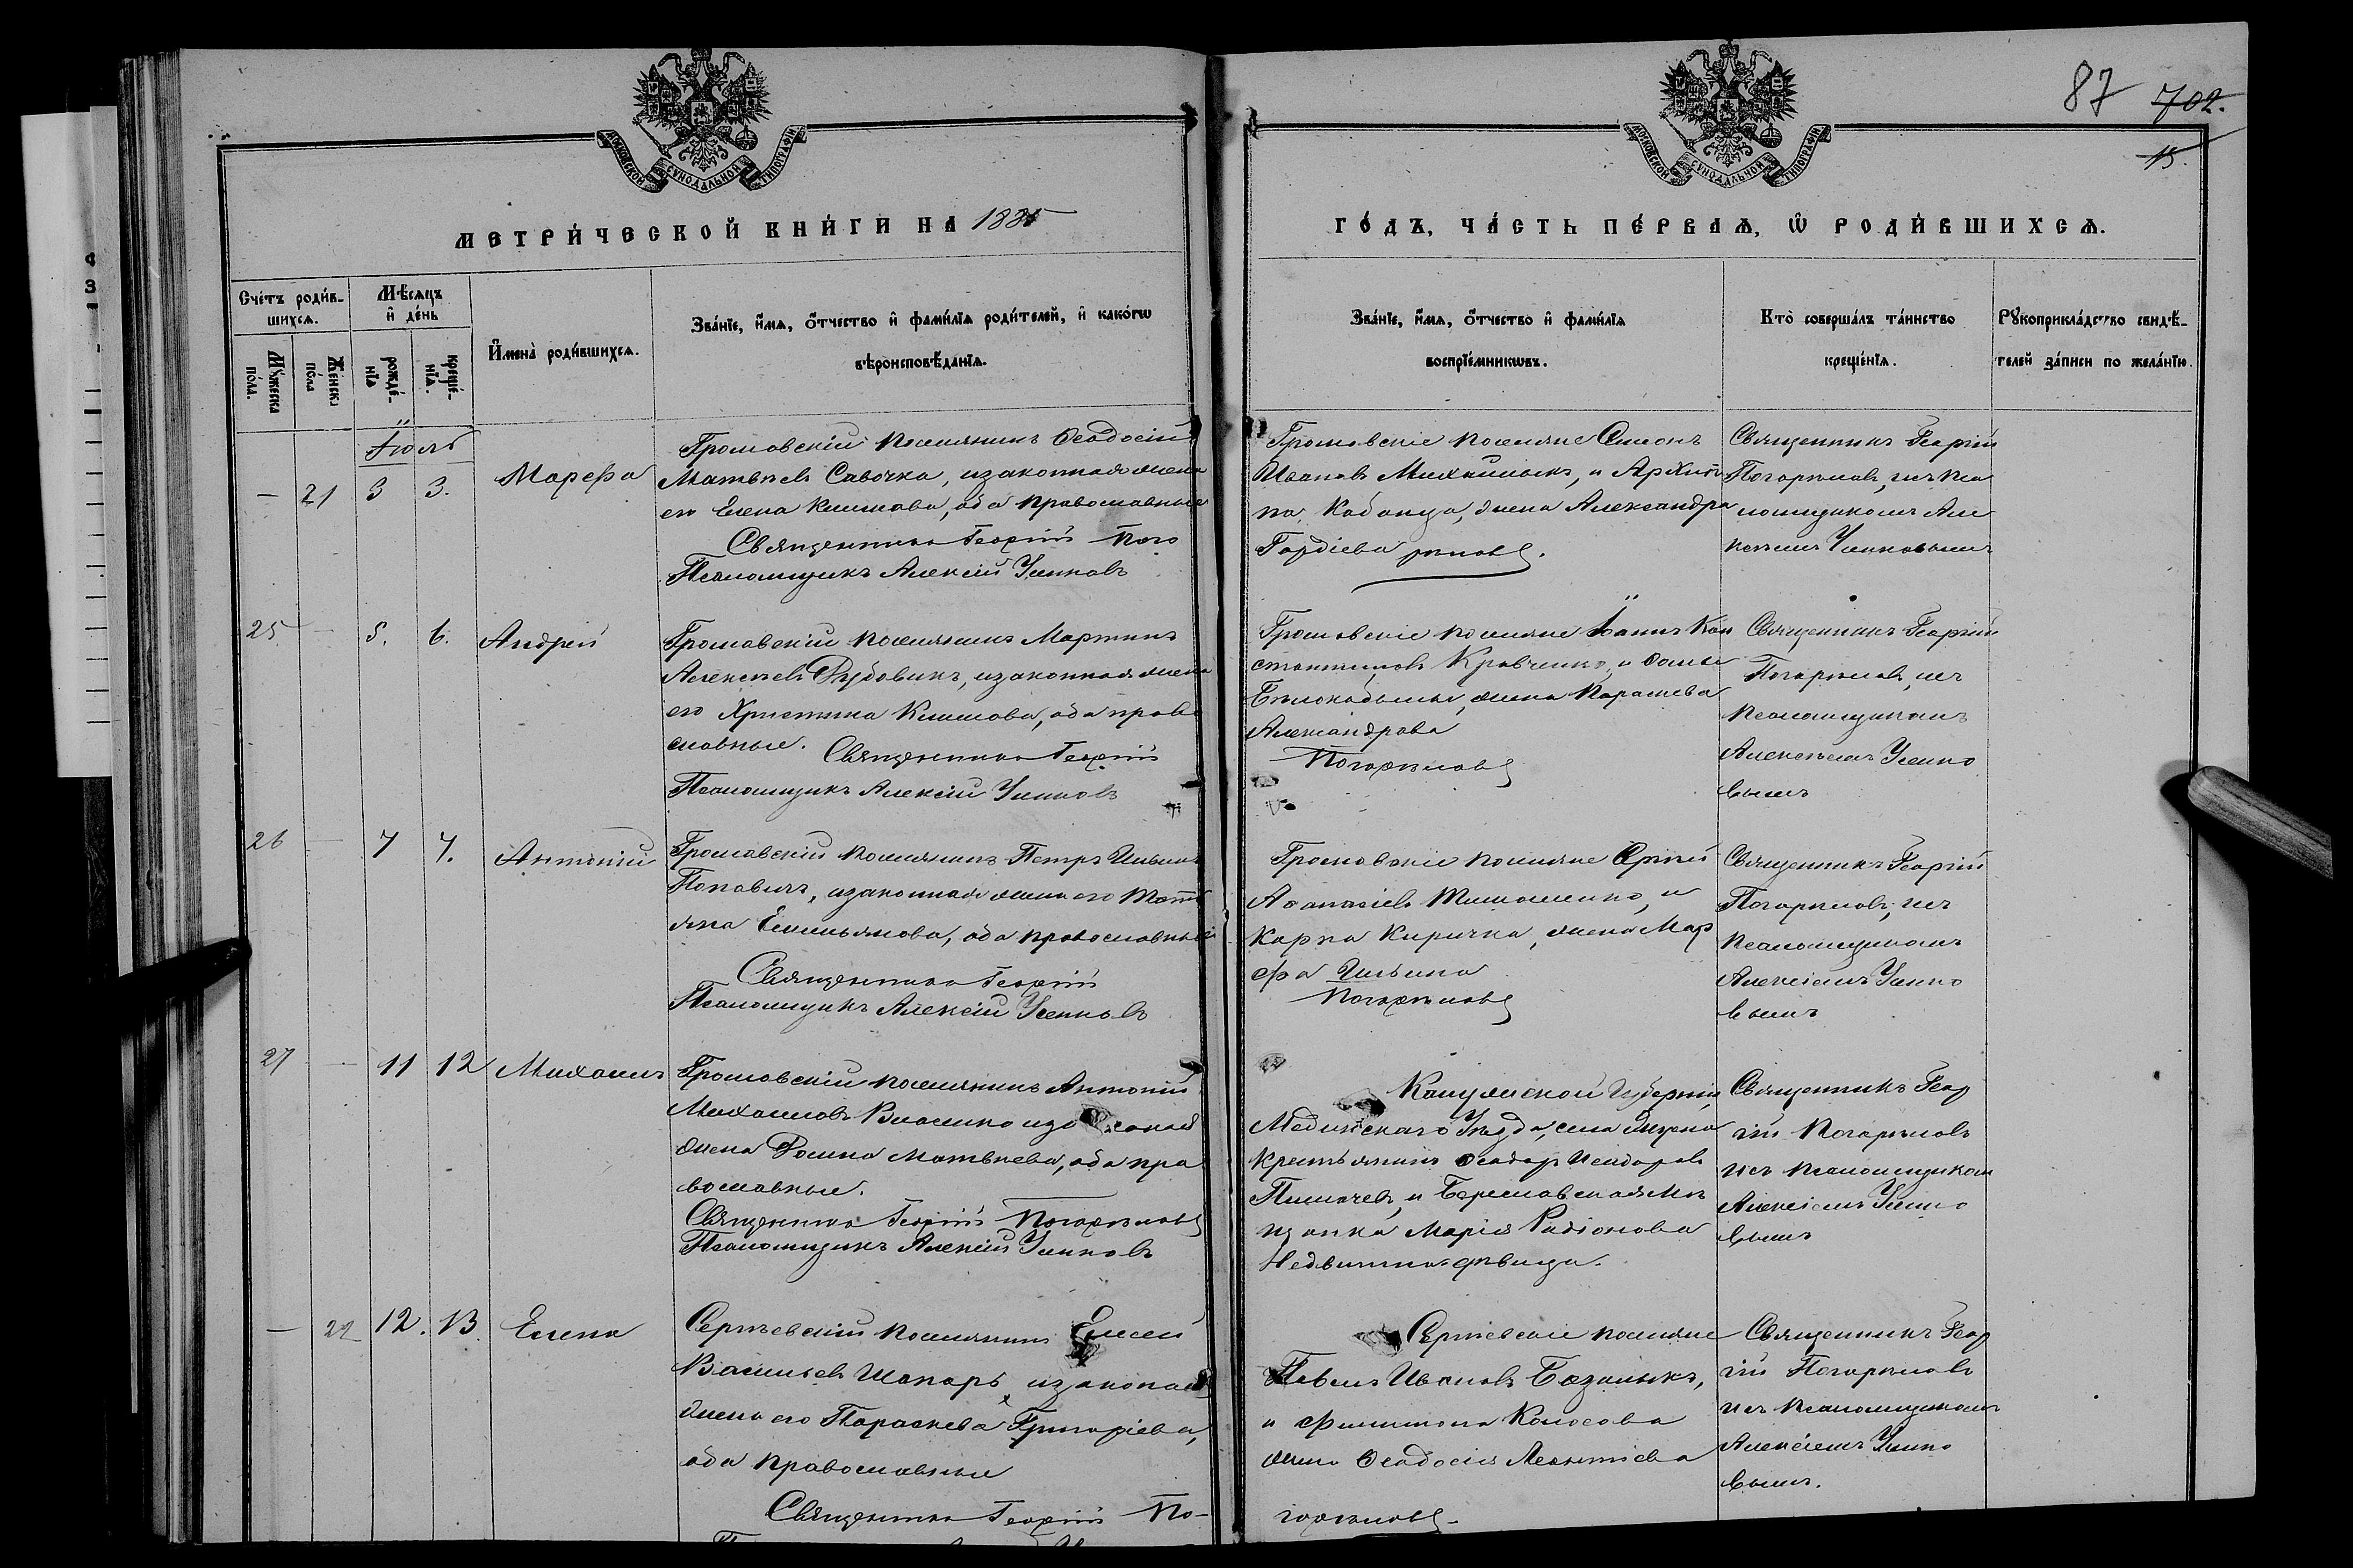 87 702.
15.
МОСКОВСКОЙ СѴНОДАЛЬНОЙ ТИПОГРАФІИ
МОСКОВСКОЙ СѴНОДАЛЬНОЙ ТИПОГРАФІИ
МЕТРИ́ЧЕСКОЙ КНИ́ГИ НА 1885
ГО́ДЪ, ЧА́СТЬ ПЕ́РВАѦ, Ѿ РОДИ́ВШИХСѦ.
Сче́тъ роди́в-
шихсѧ.
Мѣ́сѧцъ
и҆ де́нь
Мꙋ́жеска
по́ла.
Же́нска
по́ла
рожде́-
нїѧ
креще́-
нїѧ.
И҆мена̀ роди́вшихсѧ.
Зва́нїе, и҆́мѧ, ѻ҆́тчество и҆ фами́лїѧ роди́телей, и҆ како́гѡ
вѣроисповѣ́данїѧ.
Зва́нїе, и҆́мѧ, ѻ҆́тчество и҆ фами́лїѧ
воспрїе́мникѡвъ.
Кто̀ соверша́лъ та́инство
креще́нїѧ.
Рꙋкоприкла́дство свидѣ́-
телей за́писи по жела́нїю.
Іюль
— 21 3 3. Марѳа
Громовскій поселянинъ Ѳеодосій
Матвѣевъ Савочка, и законная жена
его Елена Климова, оба православные
Священникъ Георгій Пого
Псаломщикъ Алексій Усиковъ
Громовскіе поселяне Симонъ
Ивановъ Михайлыкъ, и Архип
па Кабанца, жена Александра
Гордіева рѣловъ.
Священникъ Георгій
Погорѣловъ, съ пса
ломщикомъ Але
25 — 5. 6. Андрей
Громовскій поселянинъ Мартинъ
Алексѣевъ Рудовикъ, и законная жена
его Христина Климова, оба право
славные. Священникъ Георгій
Псаломщикъ Алексій Усиковъ
Громовскіе поселяне Іоаннъ Кон
стантиновъ Кравченко, и Ѳомы
жена Параскева
Александрова
Погорѣловъ
Священникъ Георгій
Погорѣловъ, съ
псаломщикомъ
Алексѣемъ Усико
вымъ
26 — 7 7. Антоній
Громовскій поселянинъ Петръ Ильинъ
Поповичъ, и законная жена его Тать
яна Емельянова, оба православные
Священникъ Георгій
Псаломщикъ Алексій Усиковъ
Громовскіе поселяне Сергій
Аѳанасіевъ Тимошенко, и
Карпа Киричка, жена Мар
ѳа Ильина
Погорѣловъ
Священникъ Георгій
Погорѣловъ, съ
псаломщикомъ
Алексіемъ Усико
вымъ
27 — 11 12 Михаилъ
Громовскій поселянинъ Антоній
Михаиловъ Власенко и законная
жена Матвѣева, оба пра
вославные.
Священникъ Георгій Погорѣловъ
Псаломщикъ Алексій Усиковъ
Калужской Губерніи,
Мединскаго Уѣзда, села
крестьянинъ Ѳеодоръ Исидоровъ
и Бериславская мѣ
щанка Марія Радіонова
дѣвица.
Священникъ Геор
гій Погорѣловъ
съ псаломщикомъ
Алексіемъ Усико
вымъ
— 22 12. 13. Елена
Сергѣевскій поселянинъ Елисей
Васильевъ Шапарь, и законная
жена его Параскева Григоріева,
оба православные
Священникъ Георгій По-
Сергіевскіе поселяне
Павелъ Ивановъ Базалыкъ,
и Филимона Колосова
жена Ѳеодосія Леонтіева
горѣловъ.
Священникъ Геор
гій Погорѣловъ
съ псаломщикомъ
Алексіемъ Усико
вымъ.